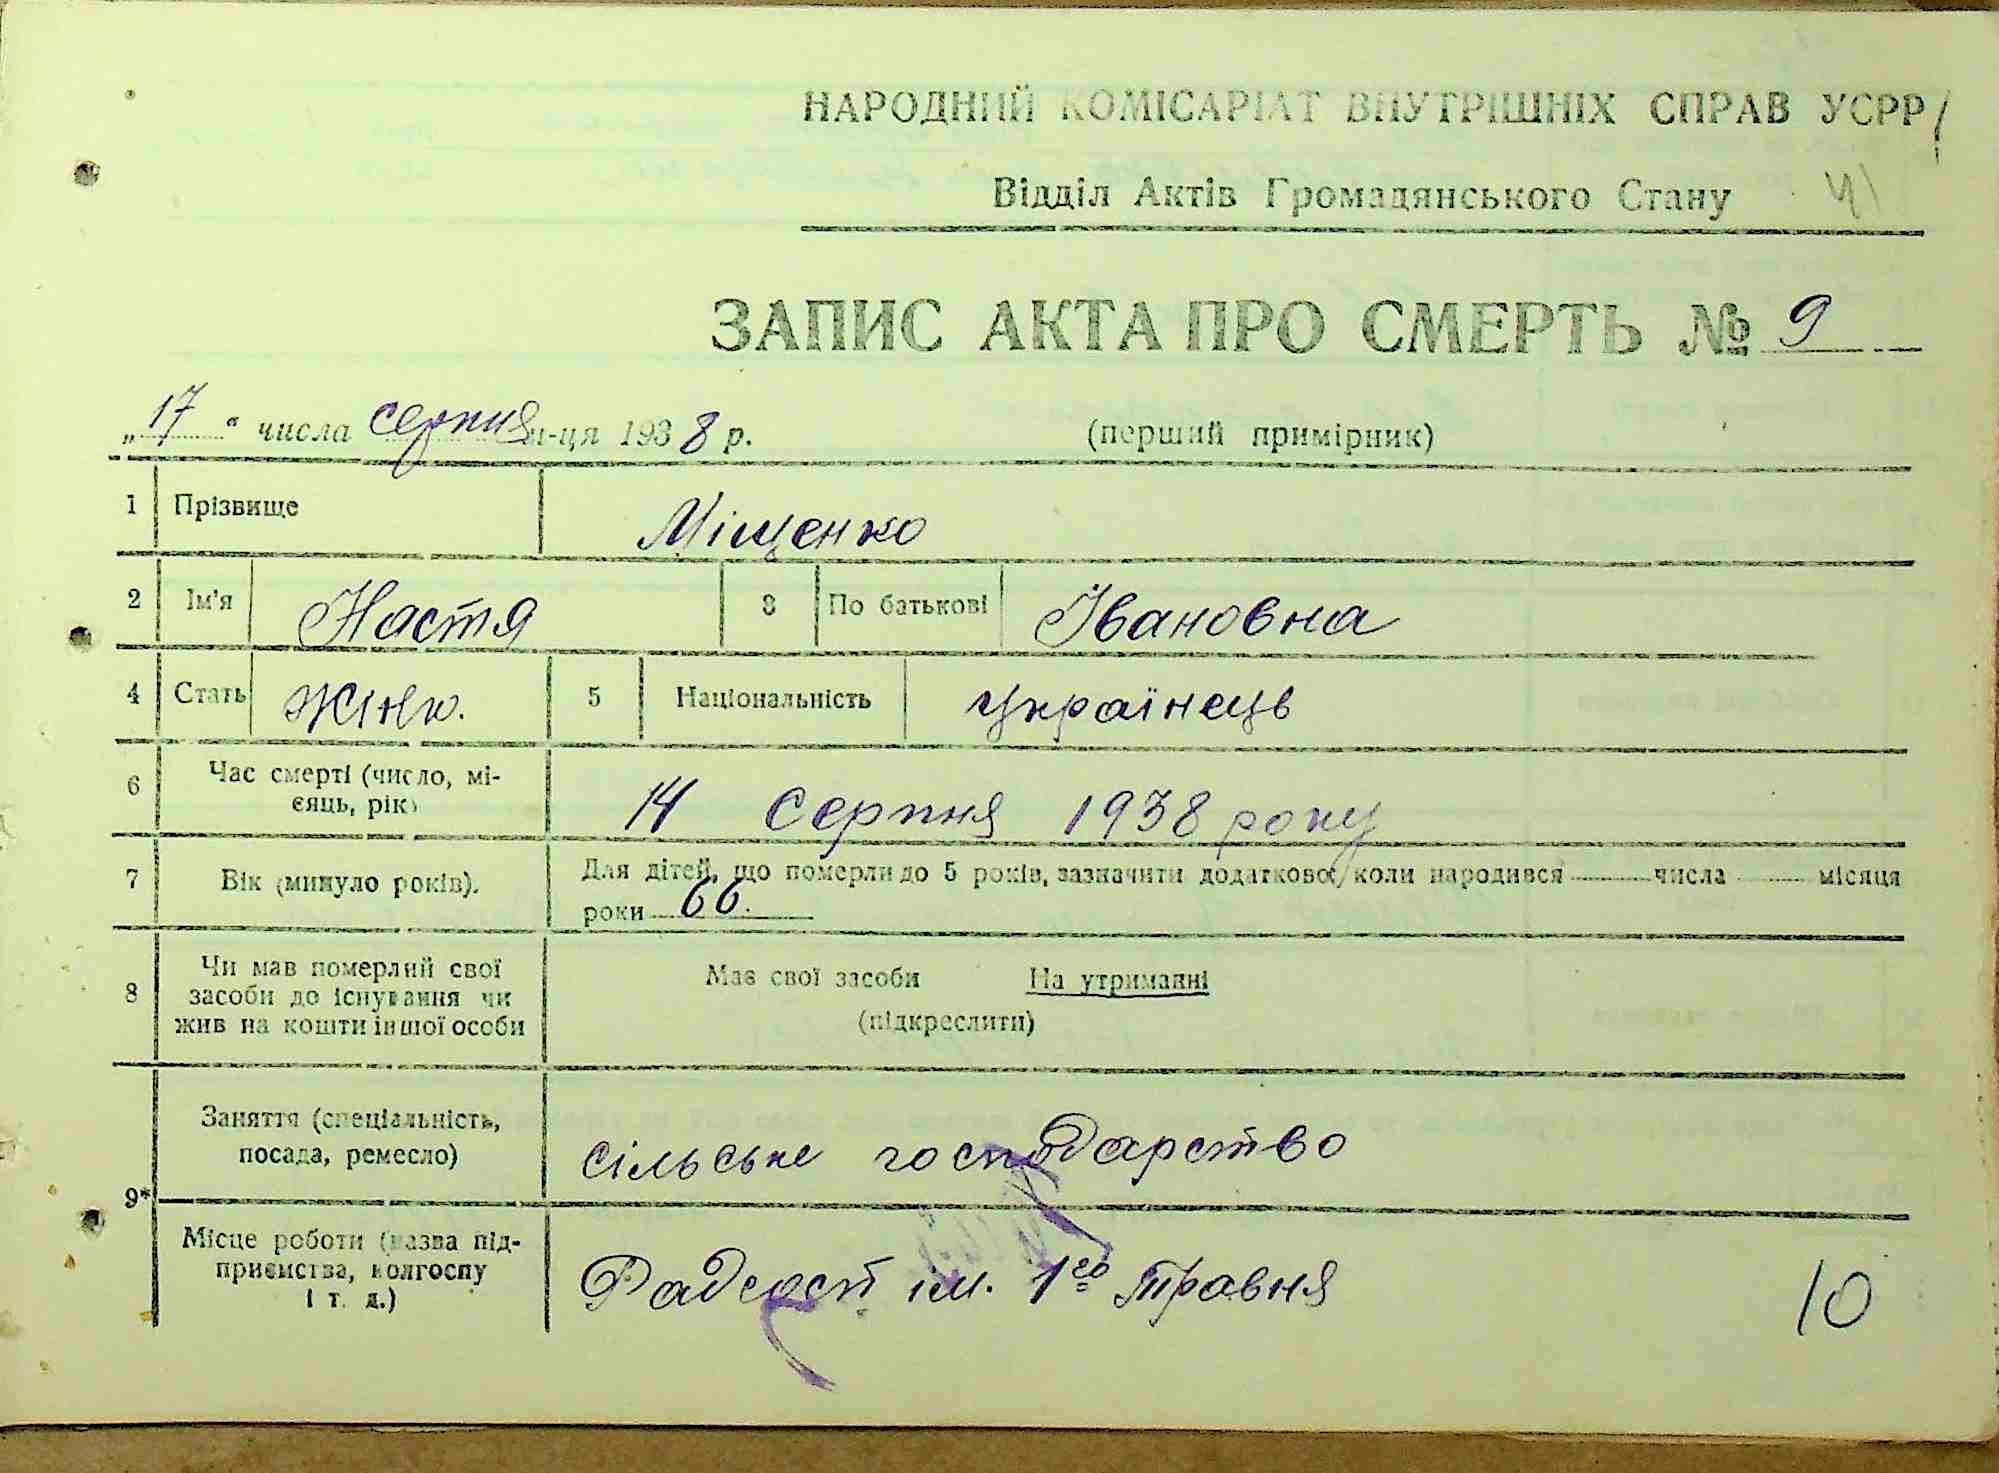 НАРОДНИЙ КОМІСАРІАТ ВНУТРІШНІХ СПРАВ УСРР
Відділ Актів Громадянського Стану
ЗАПИС АКТА ПРО СМЕРТЬ № 9
„17“ числа серпня м-ця 1938 р. (перший примірник)
1 Прізвище Міщенко
2 Ім'я Настя 3 По батькові Івановна
4 Стать жінк. 5 Національність Українець
6 Час смерті (число, мі-
сяць, рік) 14 серпня 1938 року
7 Вік (минуло років). Для дітей, що померли до 5 років, зазначити додатково, коли народився числа місяця
роки 66.
8 Чи мав померлий свої
засоби до існування чи
жив на кошти іншої особи
Має свої засоби На утриманні
(підкреслити)
9* Заняття (спеціальність,
посада, ремесло) сільське господарство
Місце роботи (назва під-
приємства, колгоспу
і т. д.) Радгосп ім. 1го Травня
10